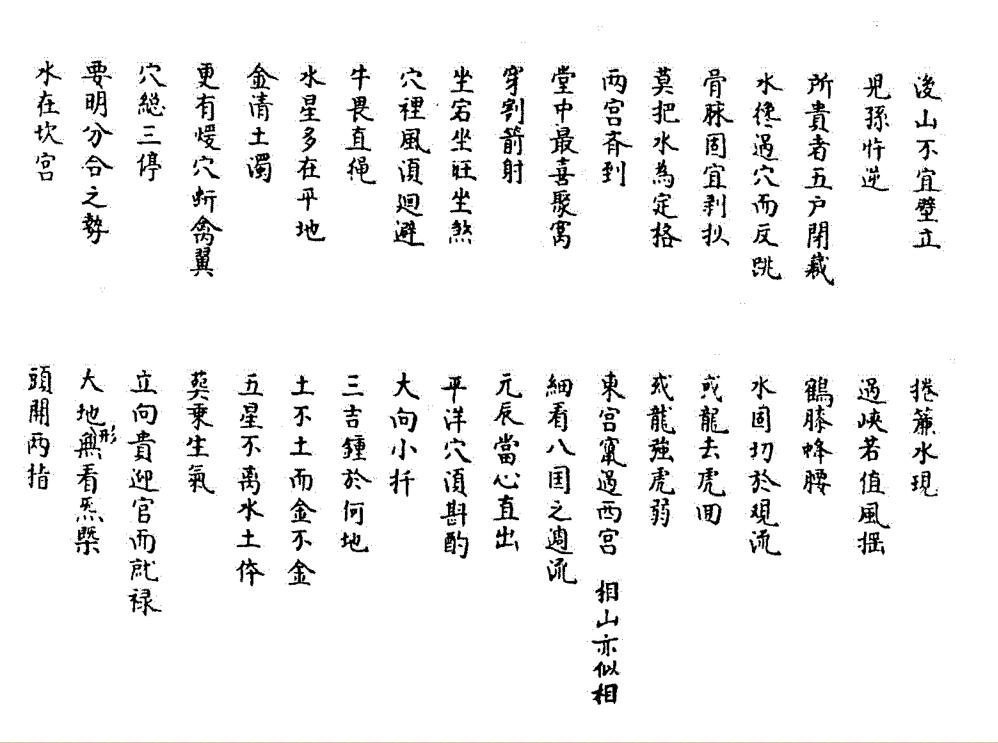 後山不宜壁立
兒孫忤逆
所貴者五戶閉藏
水纔過穴而反跳
骨脉固宜剥拟
莫把水為定格
两宮斉到
堂中最喜聚窩
穿割箭射
坐宕坐旺坐煞
穴裡風湏廻避
牛畏直繩
水星多在平地
金清土濁
更有煖穴斬禽翼
穴總三停
要明分合之勢
水在坎宮
捲簾水現
過峽若值風揺
鶴膝蜂腰
水固切於观流
或龍去虎回
或龍強虎弱
東宮竄過西宮 相山亦似相
細看八国之週流
元辰當心直出
平洋穴湏斟酌
大向小扦
三吉鍾於何地
土不土而金不金
五星不离水土体
葬乗生氣
立向貴迎官而就禄
大地無形看炁槩
頭開两指